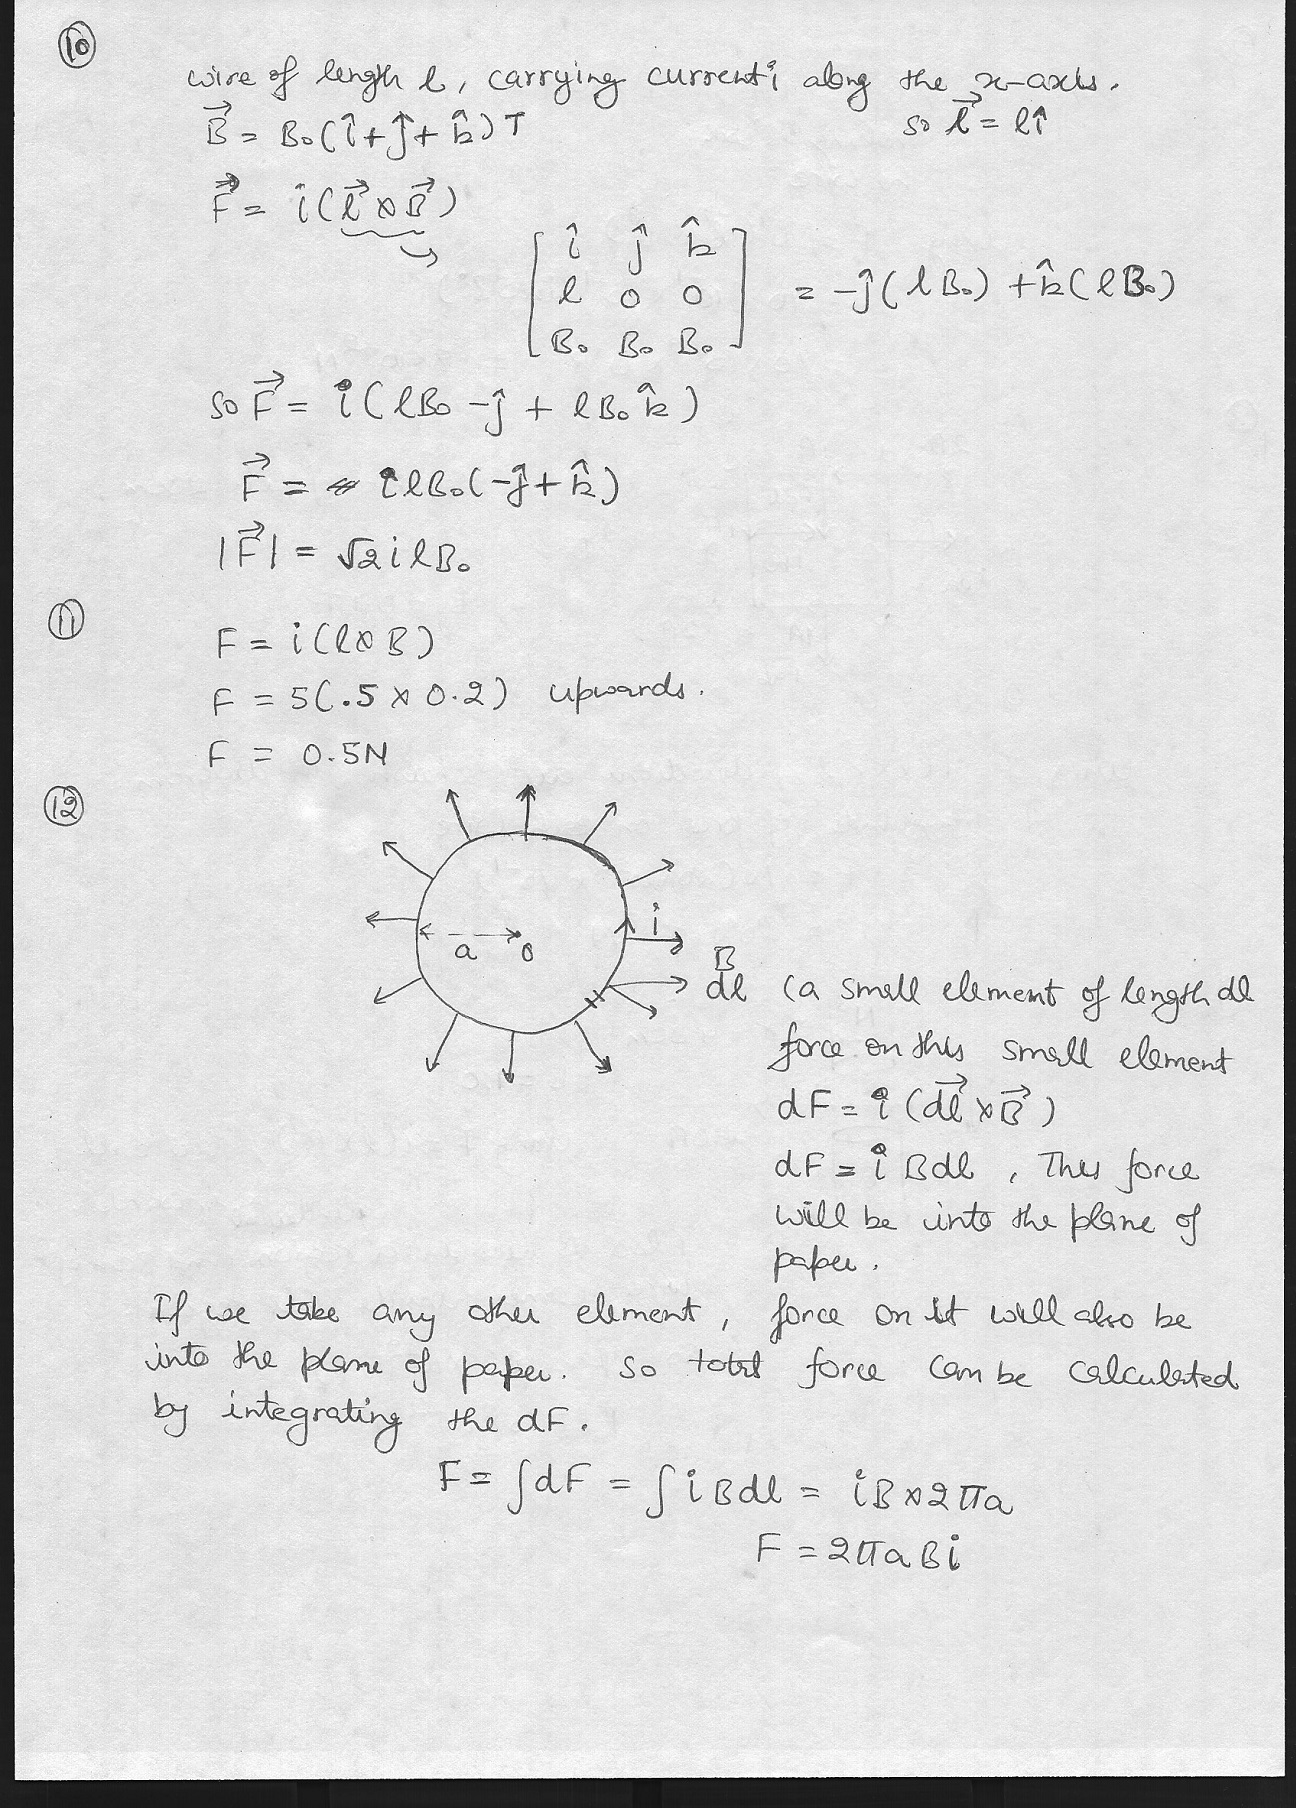 10
wire of length l, carrying current i along the x-axis.
B⃗ = B₀(î+ĵ+k̂) T so l⃗ = lî
F⃗ = i(l⃗×B⃗)
î ĵ k̂
l 0 0 = -ĵ(lB₀) + k̂(lB₀)
B₀ B₀ B₀
so F⃗ = i(lB₀ -ĵ + lB₀ k̂)
F⃗ = ilB₀(-ĵ+k̂)
|F⃗| = √2 i l B₀
11
F = i(l×B)
F = 5(.5 × 0.2) upwards.
F = 0.5N
12
i
a 0
B
dl (a small element of length dl
force on this small element
dF = i(dl⃗×B⃗)
dF = i B dl , This force
will be into the plane of
paper.
If we take any other element, force on it will also be
into the plane of paper. so total force can be calculated
by integrating the dF.
F = ∫dF = ∫i B dl = iB × 2πa
F = 2πaBi